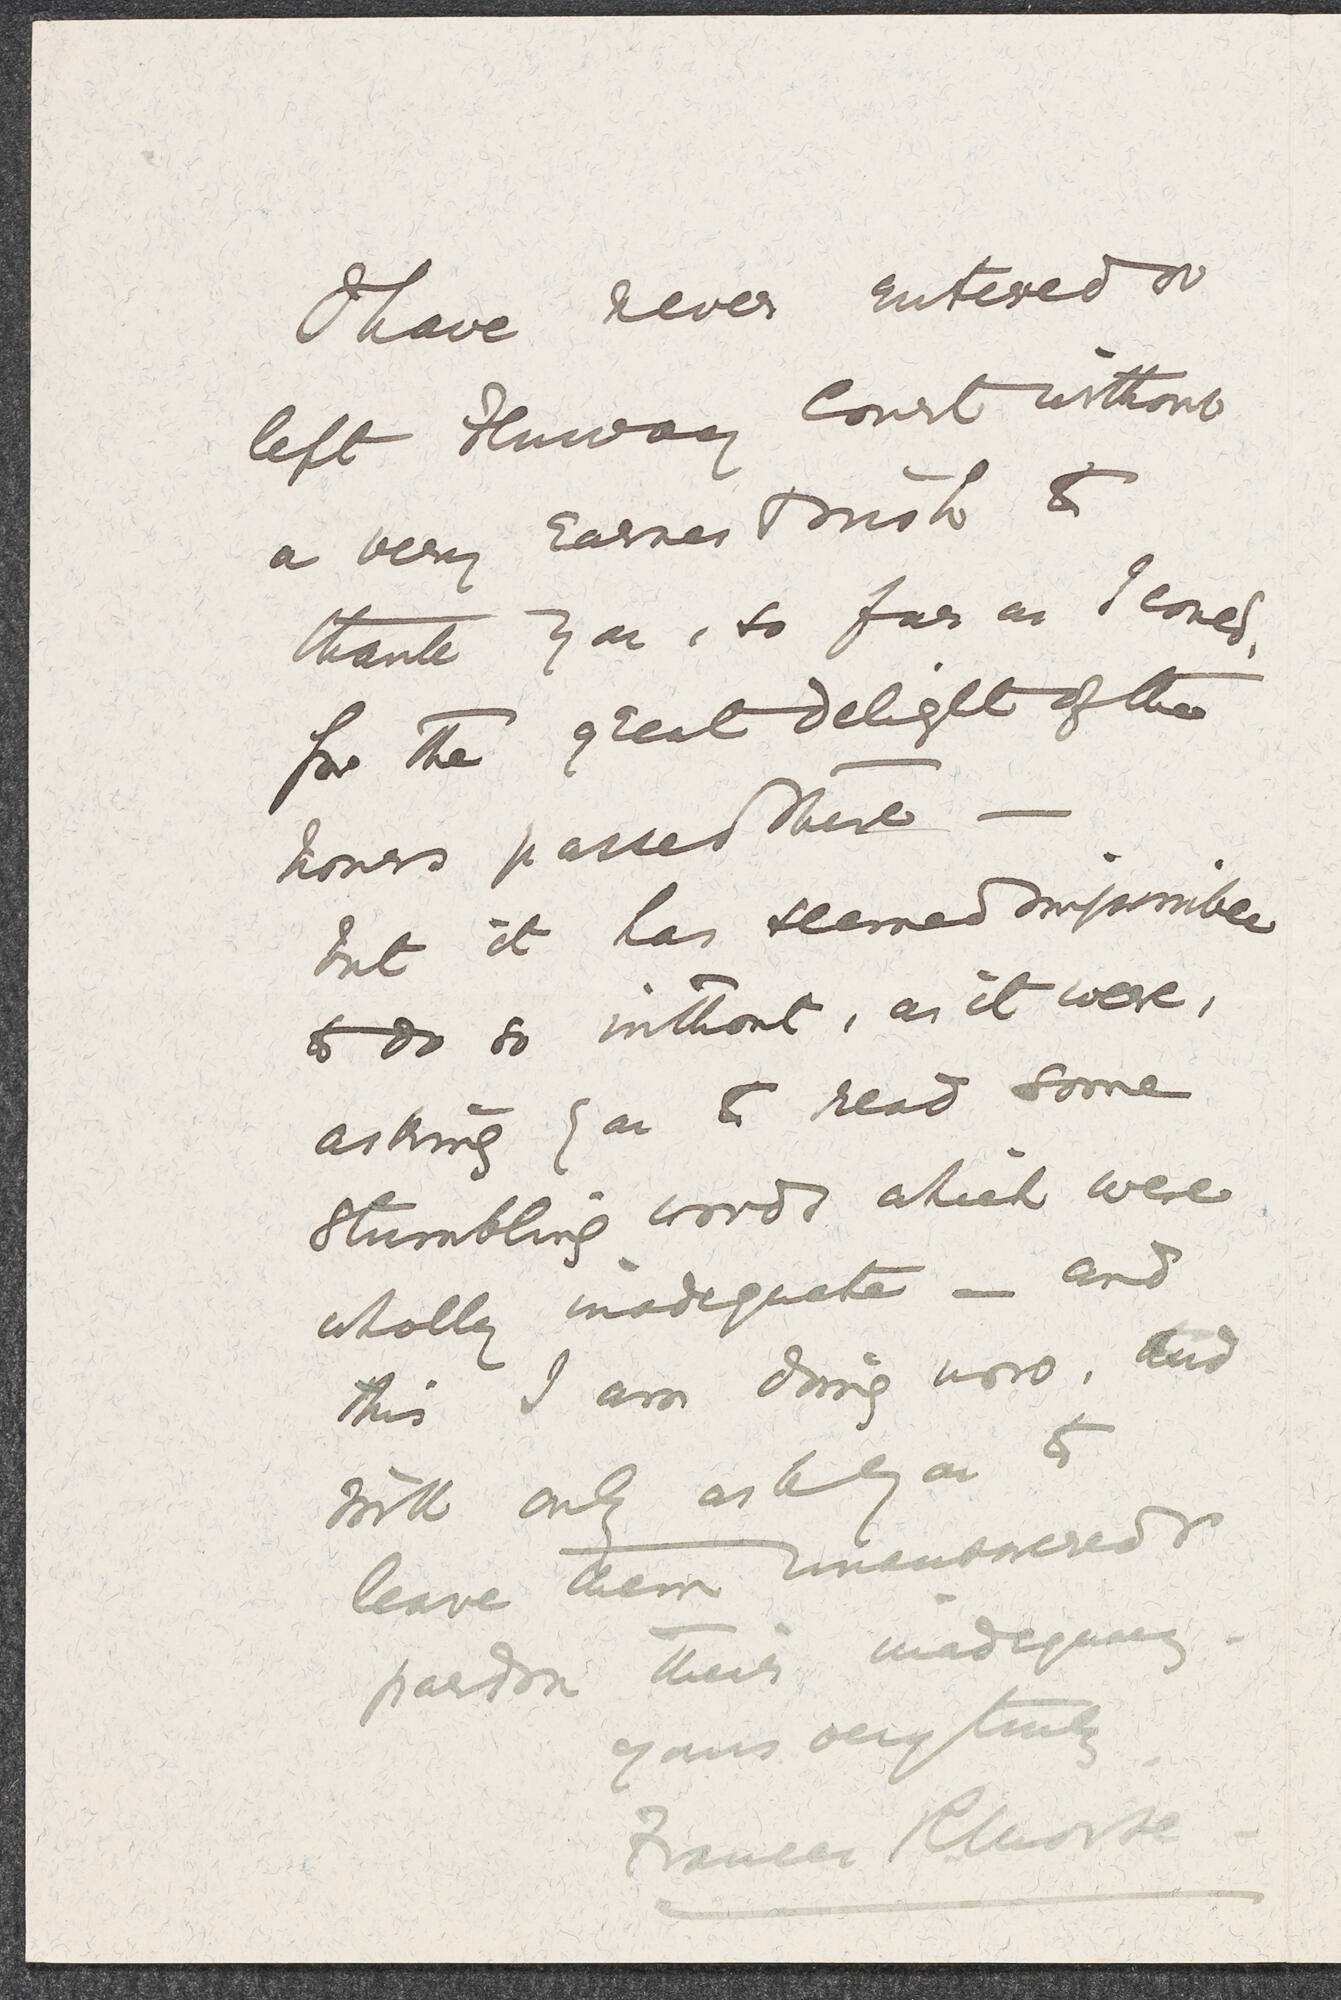 I have never entered or
left Fenway Court without
a very earnest wish to
thank you, so far as I could,
for the great delight of the
hours passed there —
but it has seemed impossible
to do so without, as it were,
asking you to read some
stumbling words which were
wholly inadequate — and
this I am doing now, and
will only ask you to
leave them unanswered &
pardon their inadequacy -
yours very truly.
Frances R. Morse -